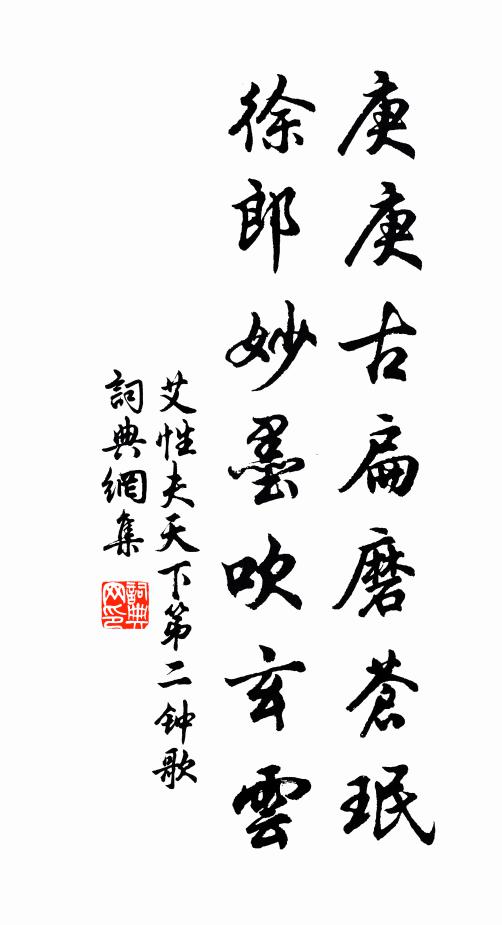 庚庚古扁磨蒼珉
徐郎妙墨吹玄雲
艾性夫天下第二钟歌
詞典網集
詞典网印